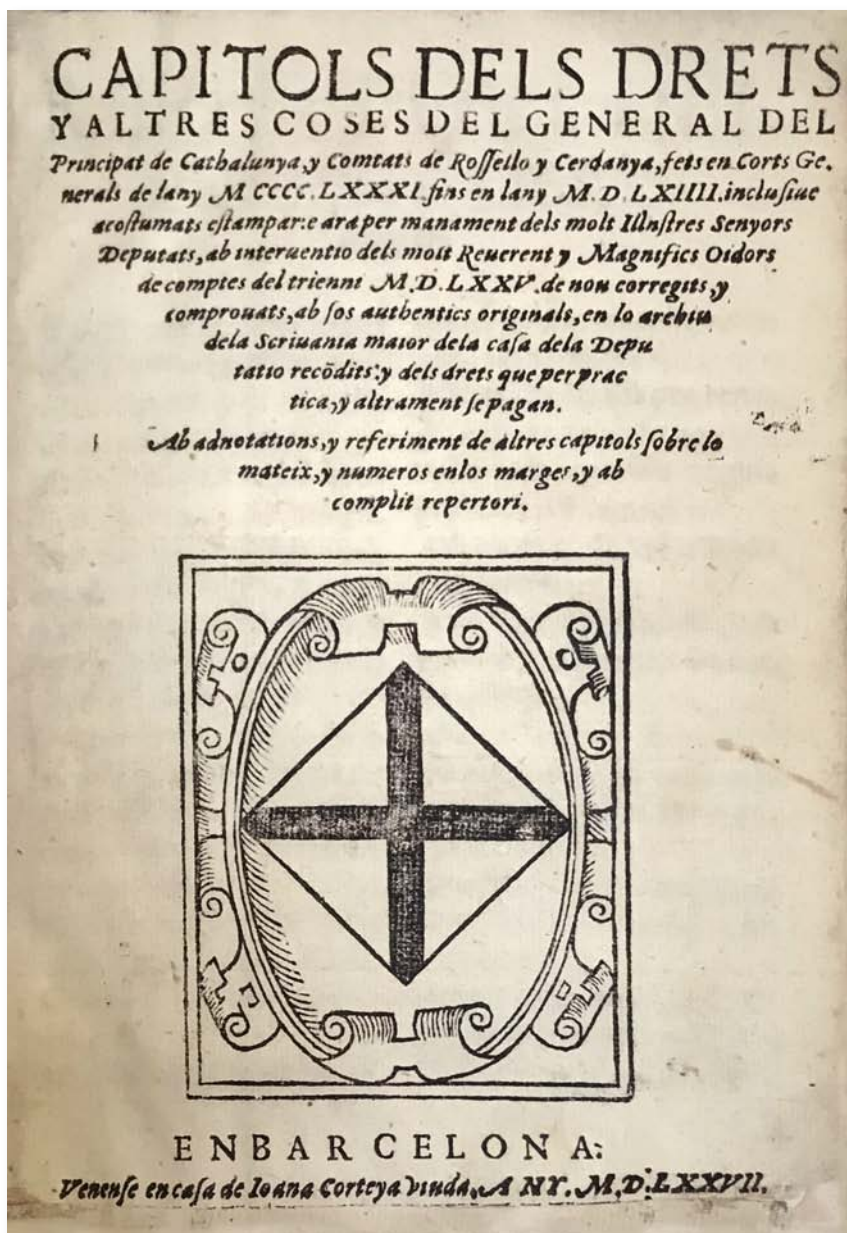 CAPITOLS DELS DRETS
Y ALTRES COSES DEL GENERAL DEL
Principat de Cathalunya, y Comtats de Roſſello y Cerdanya, fets en Corts Ge.
nerals de lany M CCCC. LXXXI. fins en lany M. D. LXIIII. incluſiue
acoſtumats eſtampar: e ara per manament dels molt Illuſtres Senyors
Deputats, ab interuentio dels molt Reuerent y Magnifics Oidors
de comptes del trienni M. D. LXXV. de nou corregits, y
comprouats, ab ſos authentics originals, en lo archiu
dela Scriuania maior dela caſa dela Depu
tatio recōdits: y dels drets que per prac
tica, y altrament ſe pagan.
Ab adnotations, y referiment de altres capitols ſobre lo
mateix, y numeros en los marges, y ab
complit repertori.
EN BARCELONA:
Venenſe en caſa de Ioana Corteya Viuda, ANY. M. D. LXXVII.